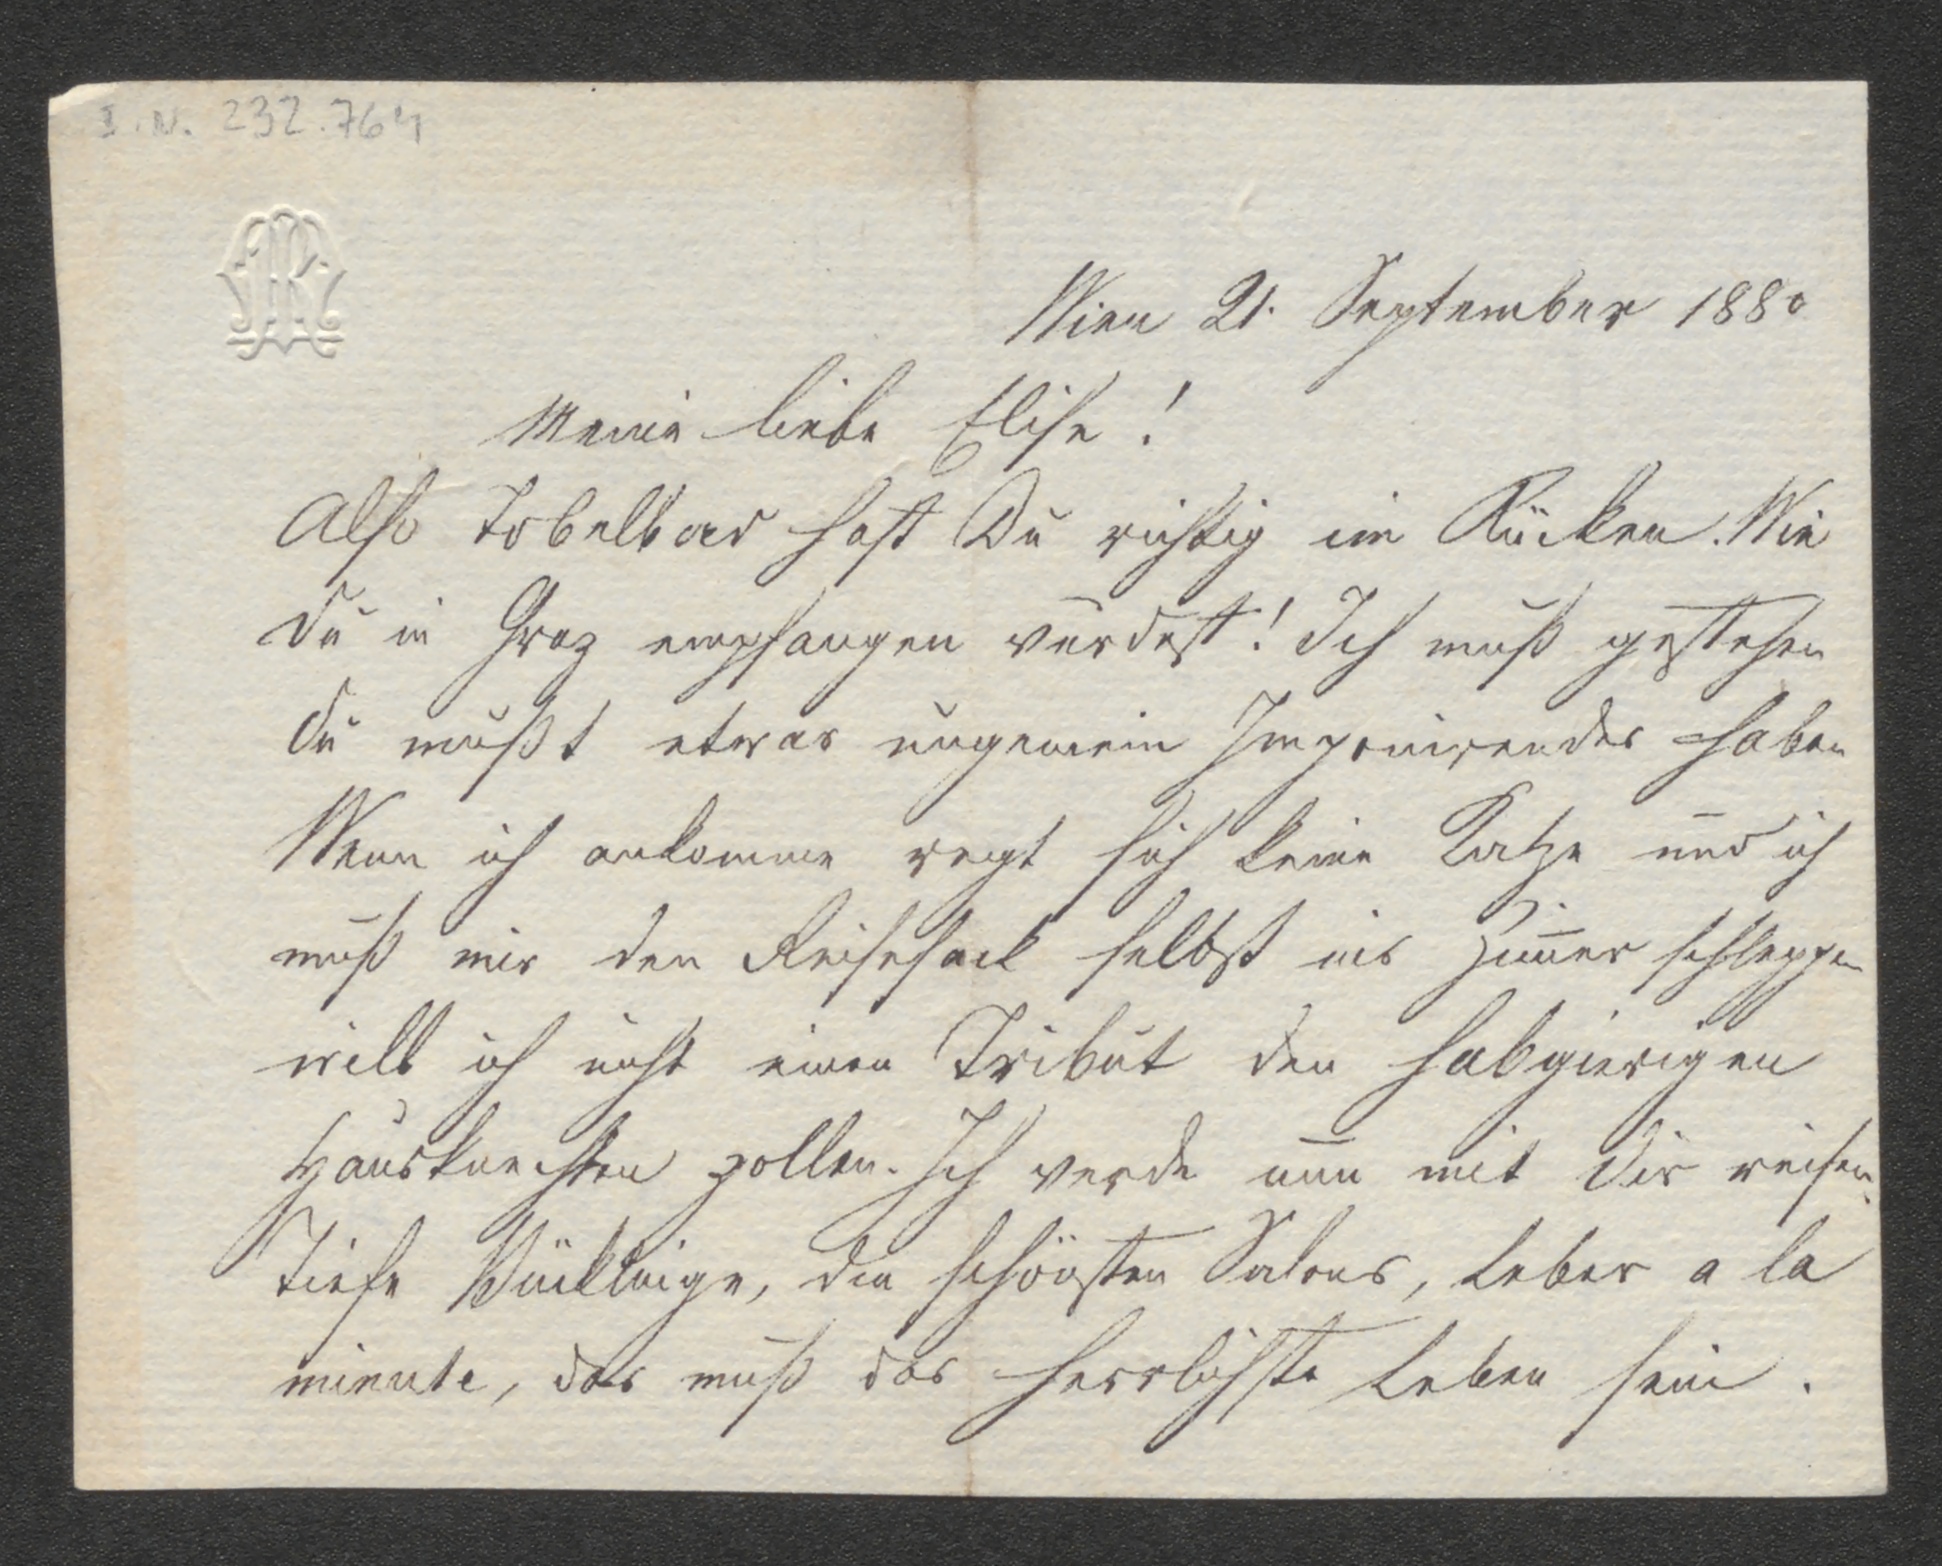 I.N. 232.764
Wien 21. September 1880
Meine liebe Elise!
Also Tobelbad hast Du richtig im Rücken. Wie
Du in Graz empfangen wurdest! Ich muß gestehen
Du mußt etwas ungemein Imponirendes haben
Wenn ich ankomme regt sich keine Katze und ich
muß mir den Reisesack selbst ins Zim̄er schleppen
will ich nicht einen Tribut den habgierigen
Hausknechten zollen. Ich werde nun mit Dir reisen.
Tiefe Bücklinge, die schönsten Salons, Leber a la
minute, das muß das herrlichste Leben sein.